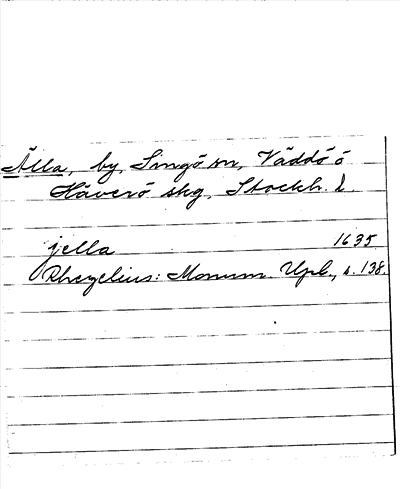 Älla, by, Singö sn, Väddö ö
Häverö skg, Stockh. l.
jella 1635
Rhezelius: Monum. Upl., s. 138.